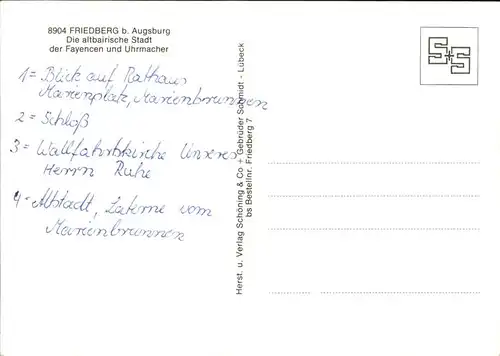 8904 FRIEDBERG b. Augsburg
Die altbairische Stadt
der Fayencen und Uhrmacher
1 = Blick auf Rathaus
Marienplatz, Marienbrunnen
2 = Schloß
3 = Wallfahrtskirche Unseres
Herrn Ruhe
4 = Altstadt, Laterne vom
Marienbrunnen
Herst. u. Verlag Schöning & Co + Gebrüder Schmidt - Lübeck
bs Bestellnr. Friedberg 7
S+S